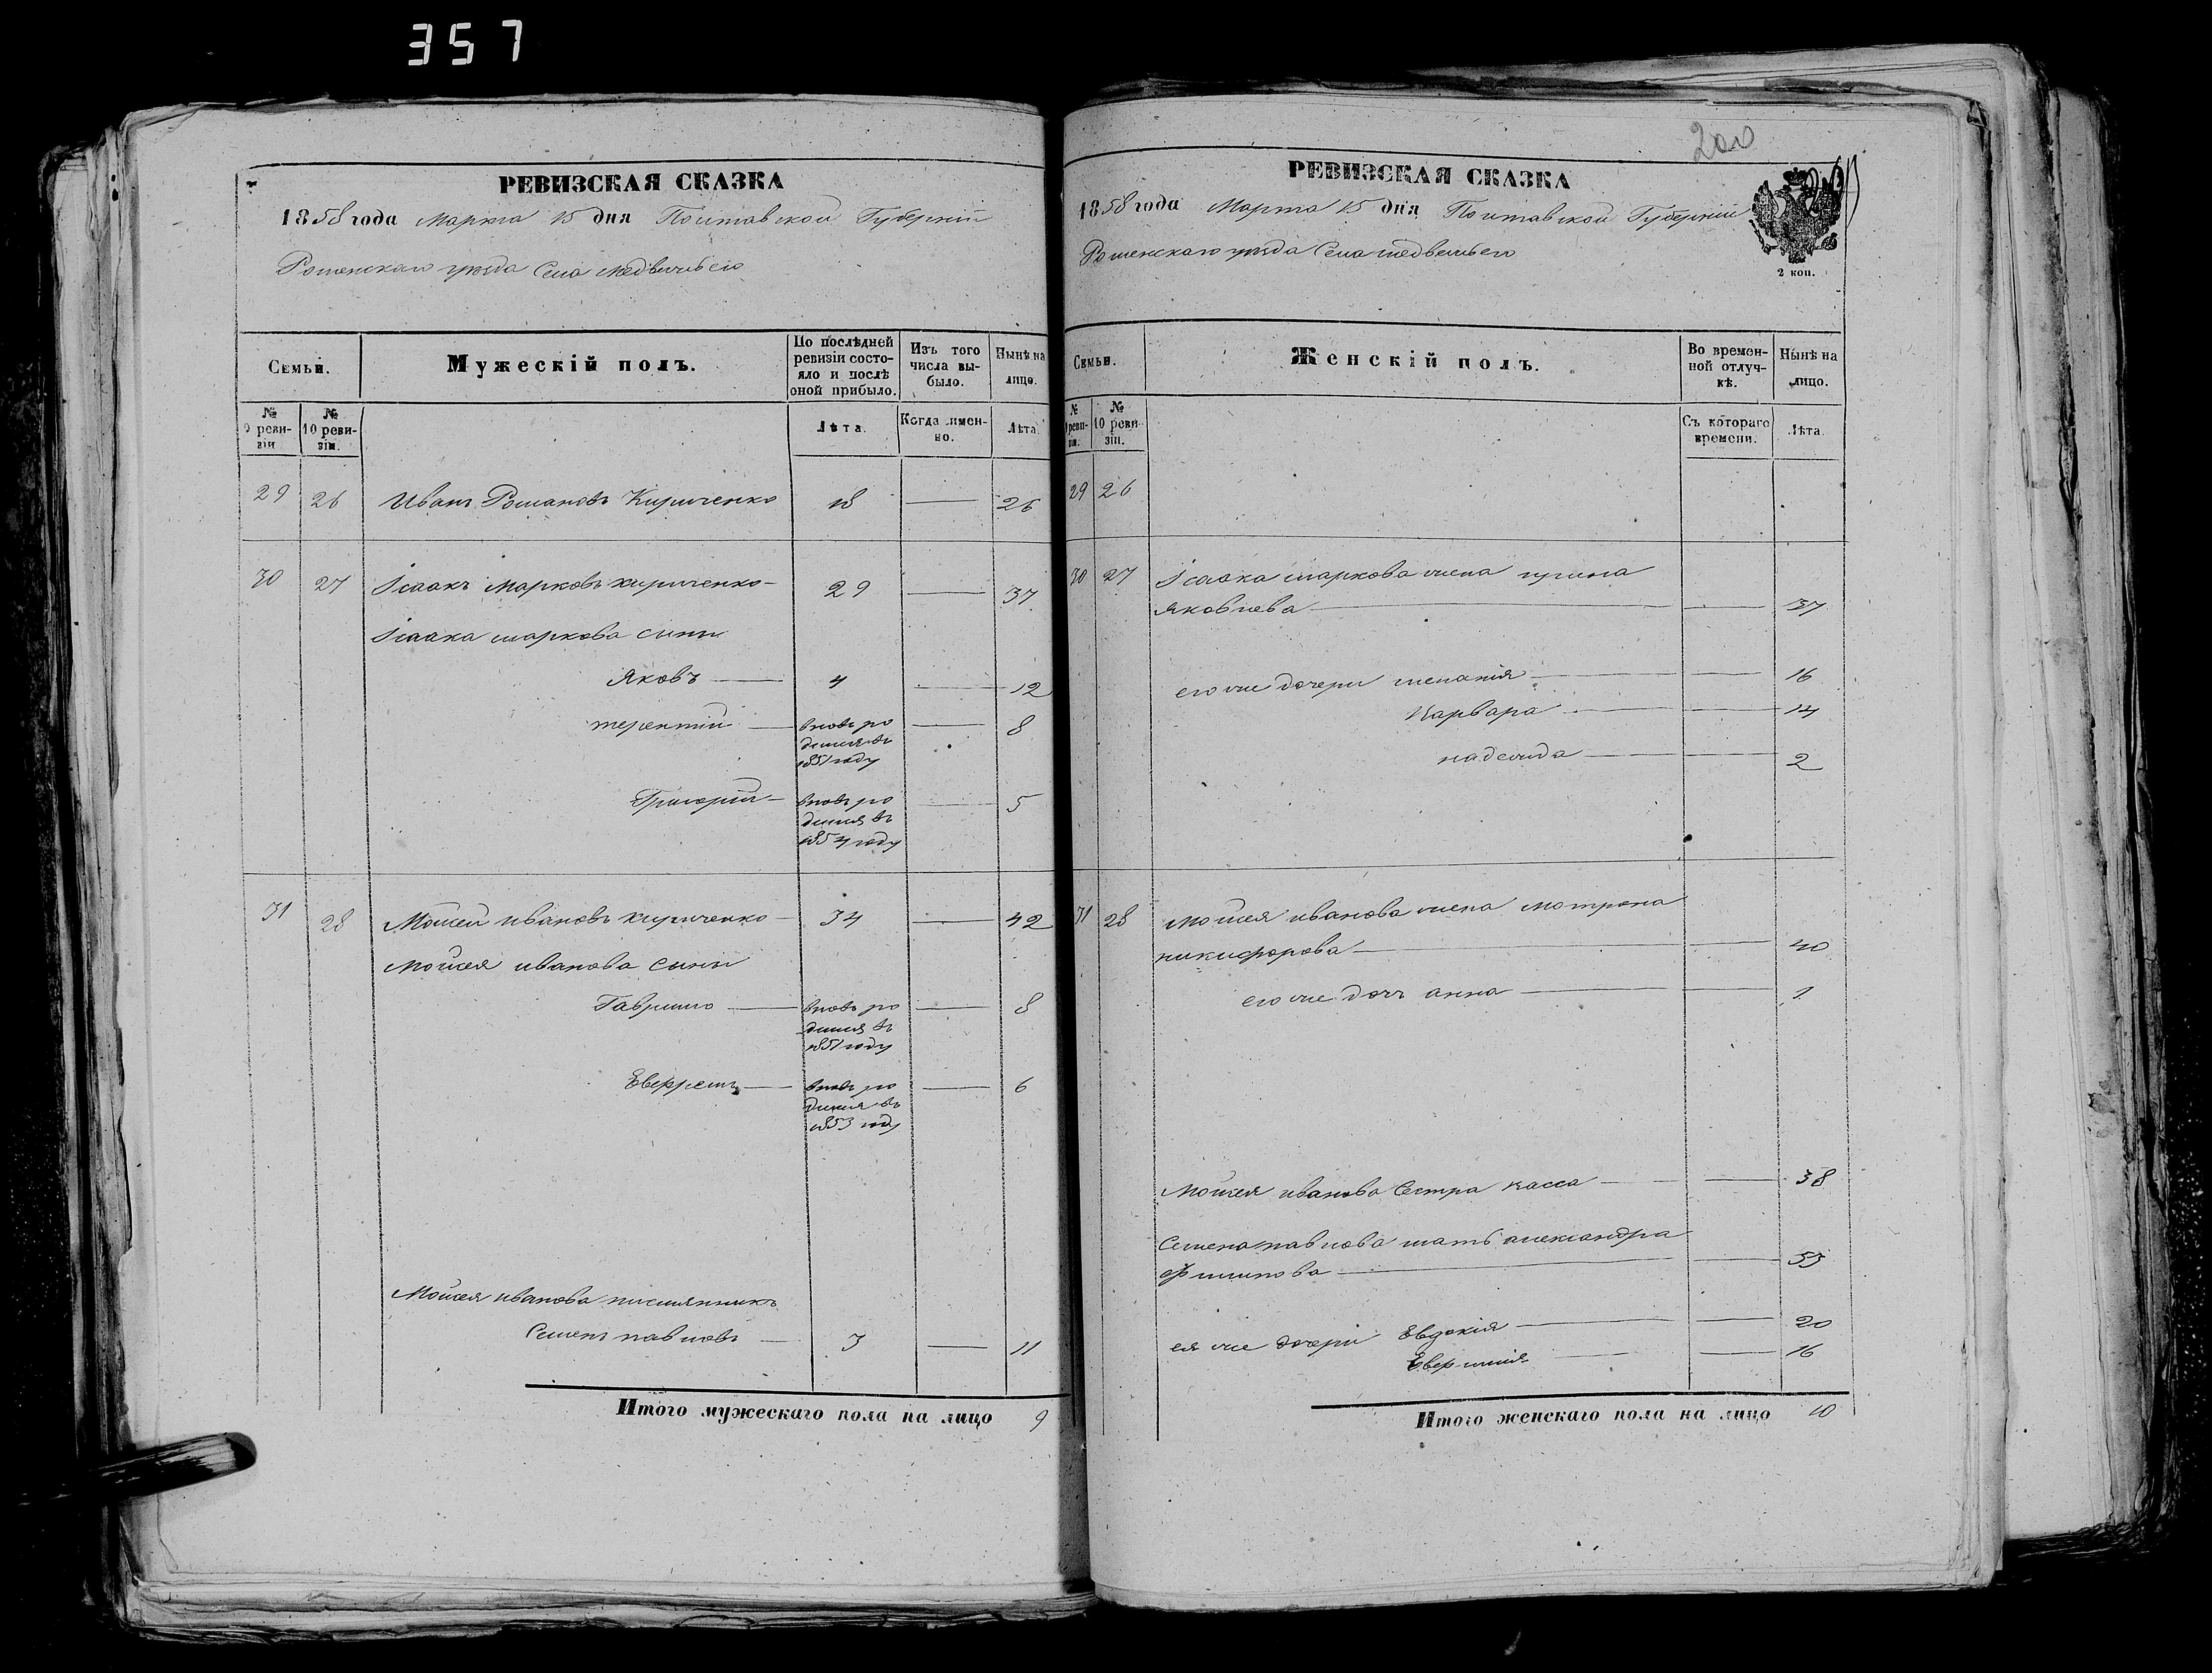 357
РЕВИЗСКАЯ СКАЗКА
1858 года Марта 15 дня Полтавской Губерніи
Роменскаго уезда Села Медвежьего
Семьи.
Мужескій полъ.
По послѣдней ревизіи состояло и послѣ оной прибыло.
Изъ того числа выбыло.
Нынѣ на лицо.
№ 9 ревизіи
№ 10 ревизіи.
Лѣта.
Когда именно.
Лѣта.
29 26 Иванъ Романовъ Кириченко 18 — 26
30 27 Ісаакъ Марковъ кириченко — 29 — 37
Ісаака маркова сыны
Яковъ — 4 — 12
терентий — вновь ро — 8
дился въ
1851 году
Григорий — вновь ро — 5
дился въ
1854 году
31 28 Моисей Ивановъ кириченко — 34 — 42
Моисея иванова сыны
Гаврило — вновь ро — 8
дился въ
1851 году
— вновь ро — 6
дился въ
1853 году
Моисея иванова племянникъ
Семенъ павловъ — 3 — 11
Итого мужескаго пола на лицо 9
200
РЕВИЗСКАЯ СКАЗКА
1858 года Марта 15 дня Полтавской Губерніи
Роменскаго уезда Села медвежьего
2 коп.
Семьи.
Женскій полъ.
Во временной отлучкѣ.
Нынѣ на лицо.
№ 9 ревизіи.
№ 10 ревизіи.
Съ котораго времени.
Лѣта.
29 26
30 27 Ісаака маркова жена ирина
Яковлева — — 37
его же дочери мелания — — 16
Варвара — — 14
надежда — — 2
31 28 Моисея иванова жена мотрона
никифорова — — 40
его же дочь анна — — 1
Моисея иванова Сестра васса — — 38
Семена павлова мать александра
Филипова — — 53
ея же дочери Евдокия — — 20
— — 16
Итого женскаго пола на лицо 10